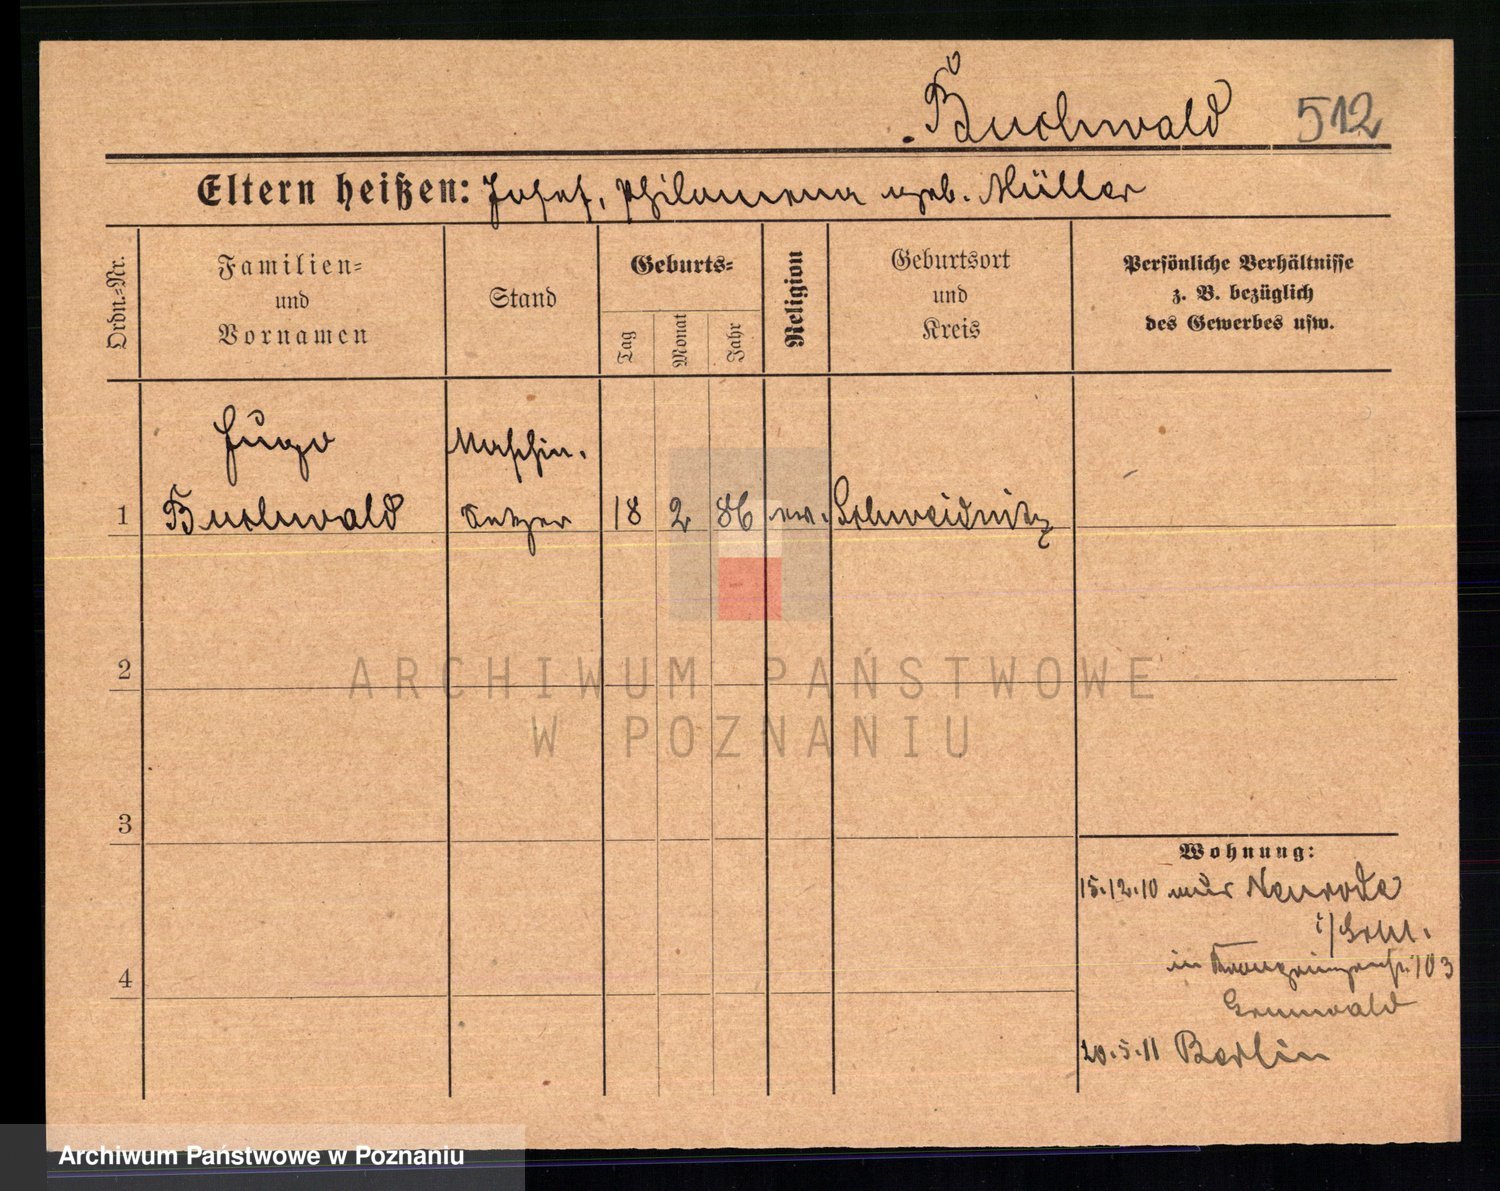 Buchwald 512
Eltern heißen: Josef, Philomena geb. Müller
Ordn.-Nr.
Familien-
und
Vornamen
Stand
Geburts-
Tag
Monat
Jahr
Religion
Geburtsort
und
Kreis
Persönliche Verhältnisse
z. B. bezüglich
des Gewerbes usw.
Hugo
Maschin.
1 Buchwald Setzer 18 2 86 ev. Schweidnitz
2
ARCHIWUM PAŃSTWOWE
W POZNANIU
3
Wohnung:
15.12.10 aus Neurode
i/Schl.
in Kronprinzenstr. 103
4
Grunwald
20.5.11 Berlin
Archiwum Państwowe w Poznaniu